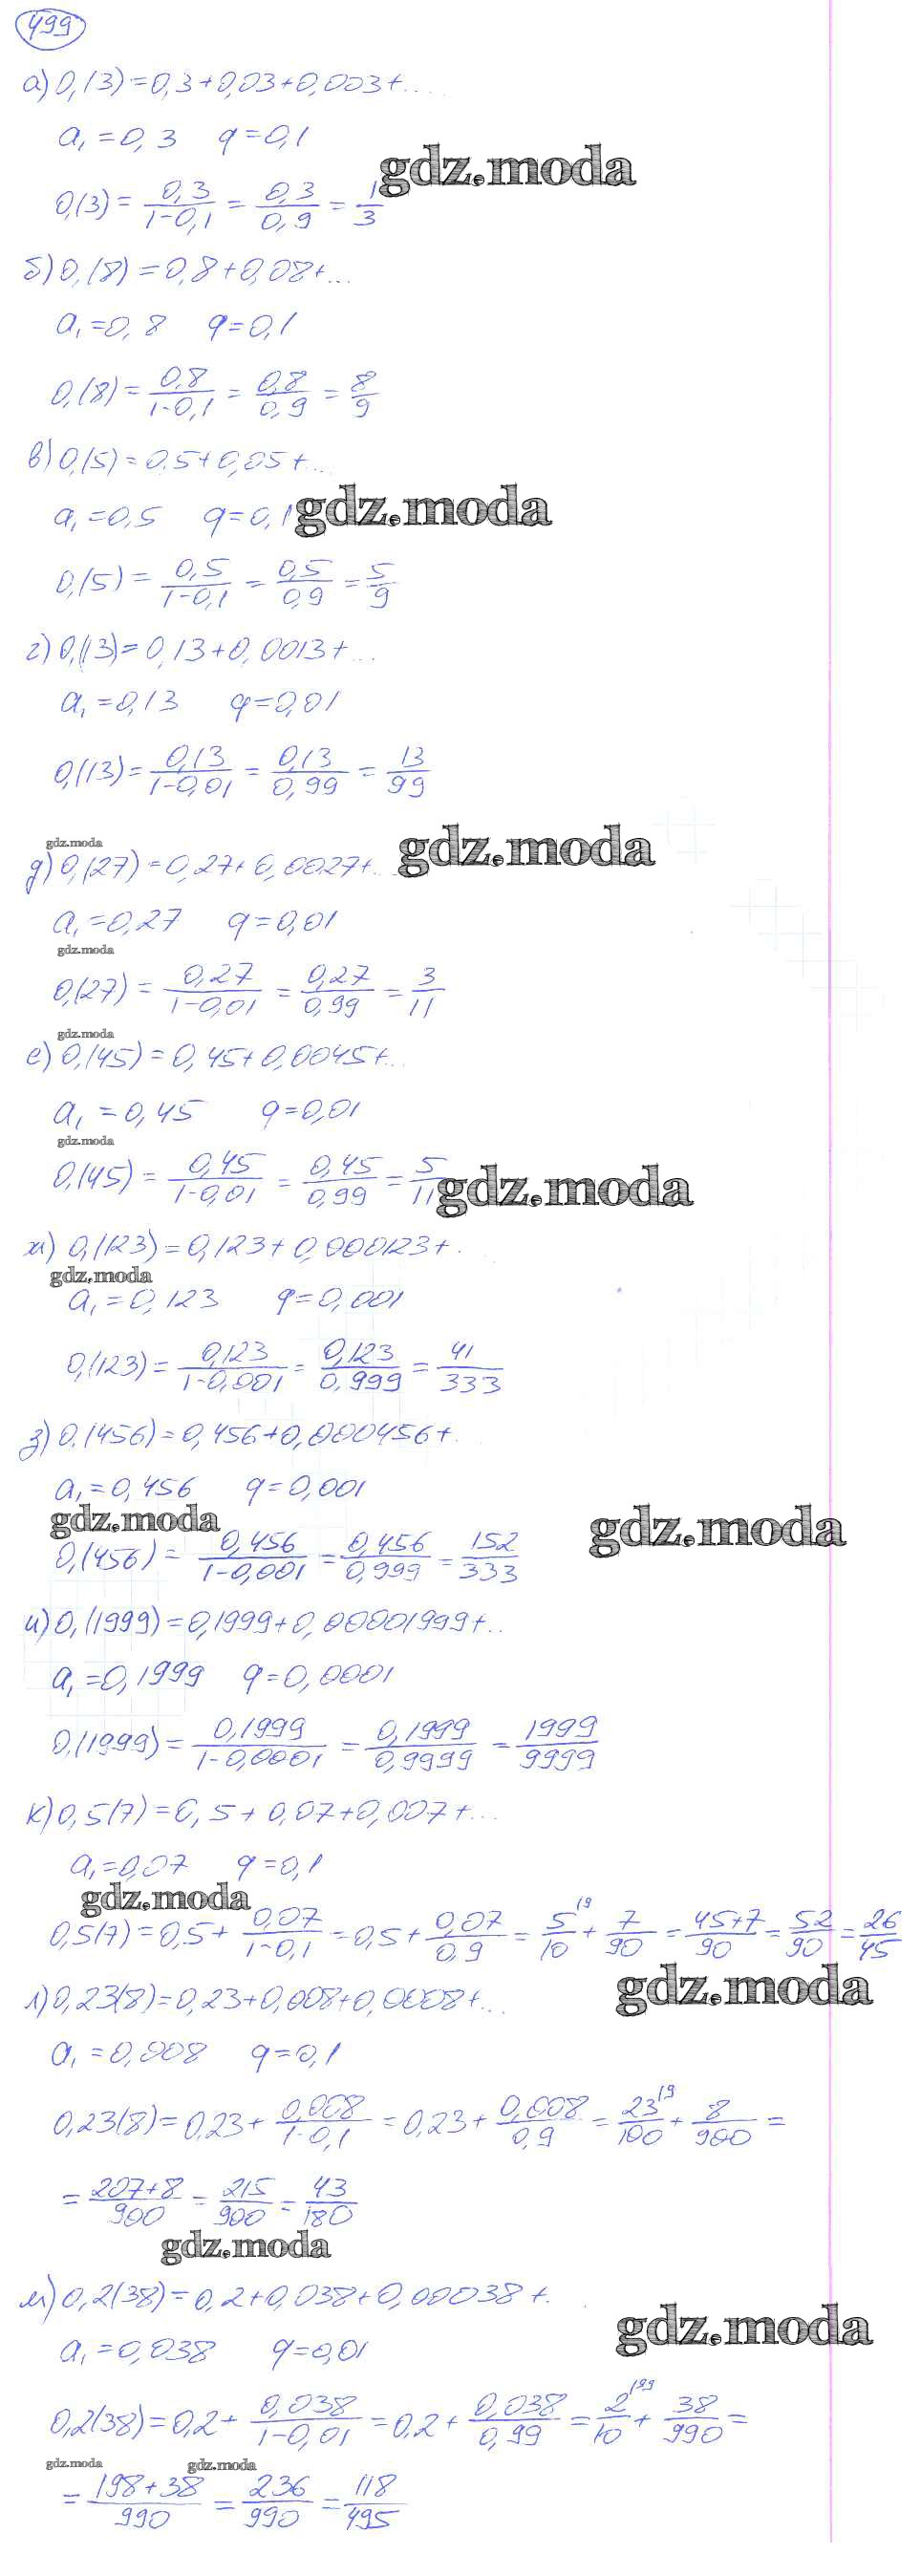 499
а) 0,(3)=0,3+0,03+0,003+...
a₁=0,3 q=0,1
gdz.moda
0,(3)=0,3/(1-0,1)=0,3/0,9=1/3
б) 0,(8)=0,8+0,08+...
a₁=0,8 q=0,1
0,(8)=0,8/(1-0,1)=0,8/0,9=8/9
в) 0,(5)=0,5+0,05+...
a₁=0,5 q=0,1
gdz.moda
0,(5)=0,5/(1-0,1)=0,5/0,9=5/9
г) 0,(13)=0,13+0,0013+...
a₁=0,13 q=0,01
0,(13)=0,13/(1-0,01)=0,13/0,99=13/99
gdz.moda
gdz.moda
д) 0,(27)=0,27+0,0027+...
a₁=0,27 q=0,01
gdz.moda
0,(27)=0,27/(1-0,01)=0,27/0,99=3/11
gdz.moda
е) 0,(45)=0,45+0,0045+...
a₁=0,45 q=0,01
gdz.moda
0,(45)=0,45/(1-0,01)=0,45/0,99=5/11
gdz.moda
ж) 0,(123)=0,123+0,000123+.
gdz.moda
a₁=0,123 q=0,001
0,(123)=0,123/(1-0,001)=0,123/0,999=41/333
з) 0,(456)=0,456+0,000456+.
a₁=0,456 q=0,001
gdz.moda
gdz.moda
0,(456)=0,456/(1-0,001)=0,456/0,999=152/333
и) 0,(1999)=0,1999+0,00001999+..
a₁=0,1999 q=0,0001
0,(1999)=0,1999/(1-0,0001)=0,1999/0,9999=1999/9999
к) 0,5(7)=0,5+0,07+0,007+...
a₁=0,07 q=0,1
gdz.moda
0,5(7)=0,5+0,07/(1-0,1)=0,5+0,07/0,9=5/10 ⁽⁹+7/90=45+7/90=52/90=26/45
gdz.moda
л) 0,23(8)=0,23+0,008+0,0008+...
a₁=0,008 q=0,1
0,23(8)=0,23+0,008/(1-0,1)=0,23+0,008/0,9=23/100 ⁽⁹+8/900=
=207+8/900=215/900=43/180
gdz.moda
м) 0,2(38)=0,2+0,038+0,00038+.
gdz.moda
a₁=0,038 q=0,01
0,2(38)=0,2+0,038/(1-0,01)=0,2+0,038/0,99=2/10 ⁽⁹⁹+38/990=
gdz.moda gdz.moda
=198+38/990=236/990=118/495